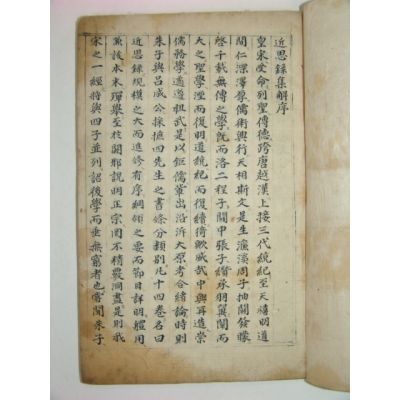 近思錄集解序
皇宋受命列聖傳德跨唐越漢上接三代統紀至天禧明道
間仁深澤厚儒術興行天相斯文是生濂溪周子抽關發矇
啓千載無傳之學既而洛二程子關中張子纘承羽翼闡而
大之聖學湮而復明道統絕而復續猗歟盛哉中興再造崇
儒務學遹遵祖武是以鉅儒輩出沿泝大原考合緒論時則
朱子與呂成公採摭四先生之書條分類別凡十四卷名曰
近思錄規模之大而進修有序綱領之要而節目詳明體用
兼該本末殫舉至於闢邪說明正宗罔不精覈洞盡是則我
宋之一經將與四子並列詔後學而垂無窮者也嘗聞朱子